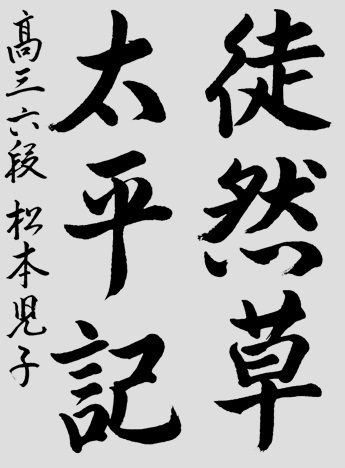 徒然草
太平記
高三六段 松本児子